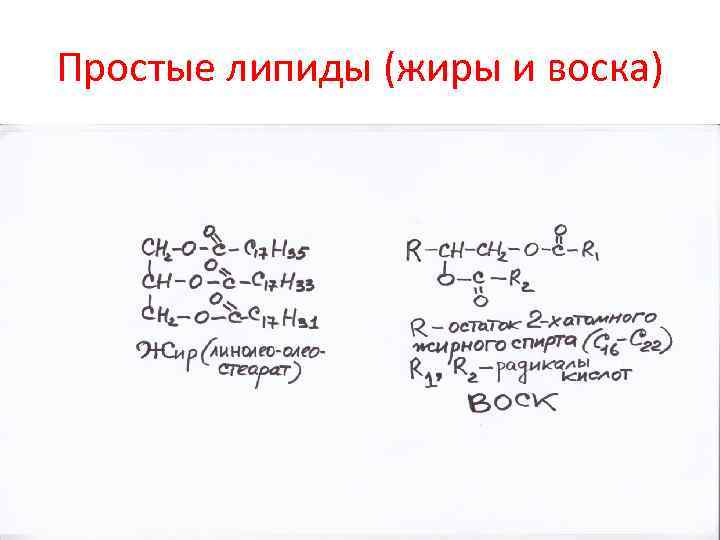 Простые липиды (жиры и воска)
CH₂-O-C-C₁₇H₃₅
O
CH-O-C-C₁₇H₃₃
O
CH₂-O-C-C₁₇H₃₁
O
Жир (линолео-олео-
стеарат)
R-CH-CH₂-O-C-R₁
O
O-C-R₂
O
R-остаток 2-хатомного
жирного спирта (C₁₆-C₂₂)
R₁, R₂-радикалы
кислот
ВОСК